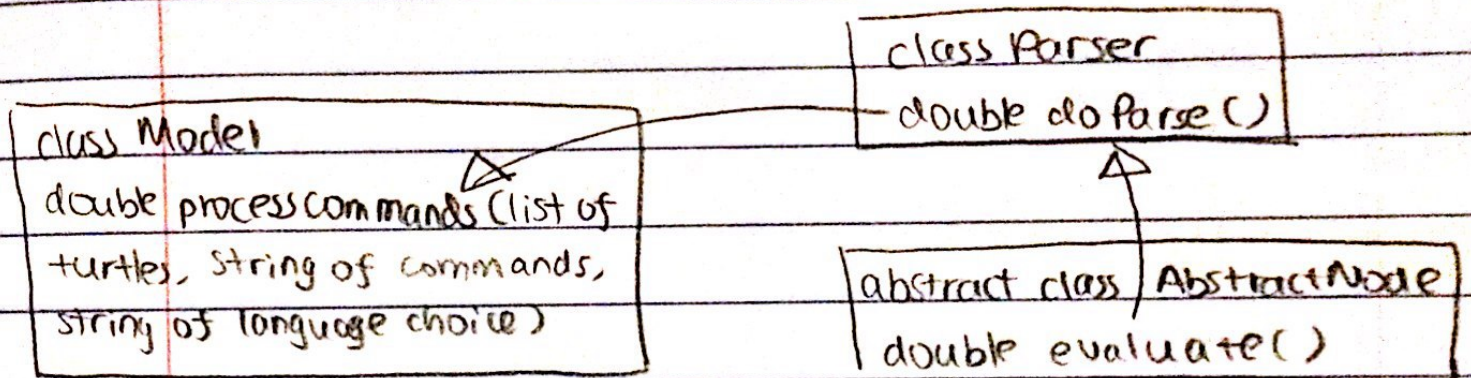 class Model
double processcommands (list of
turtles, string of commands,
string of language choice)
class Parser
double doParse()
abstract class AbstractNode
double evaluate()